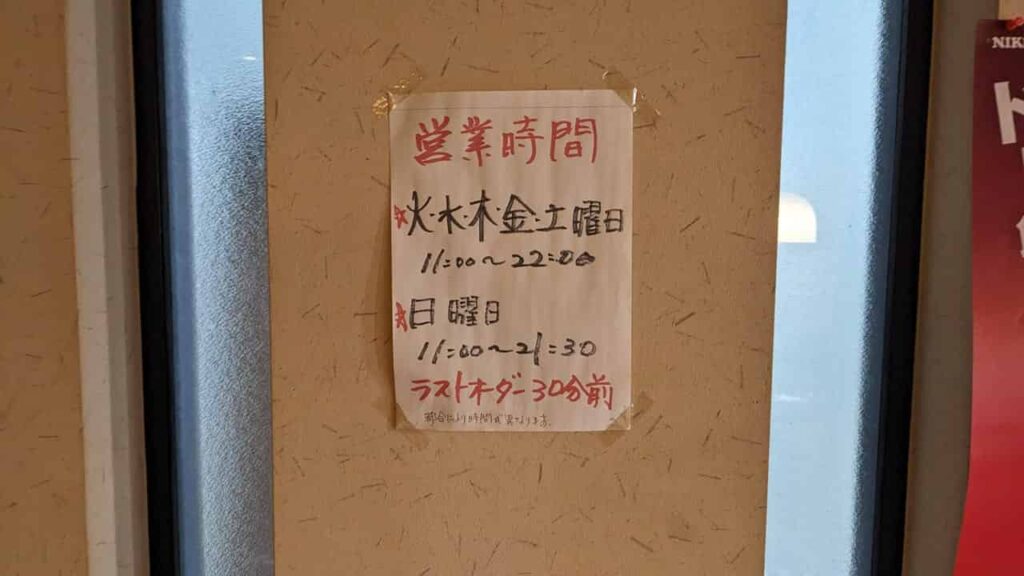 営業時間
☆火・水・木・金・土曜日
11:00～22:00
☆日曜日
11:00～21:30
ラストオーダー30分前
都合により時間が異なります。
NIK